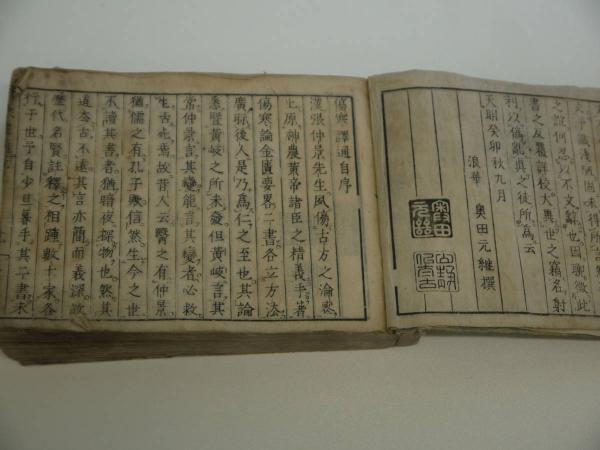 識淺陋固
之說何忍以不文辭也因聊
書之反覆詳校大異世之竊名射
利以偽亂真之徒所為云
天明癸卯秋九月
浪華 奥田元継撰
傷寒譯通自序
漢張仲景先生夙傷古方之淪
上原神農黃帝諸臣之精義手著
傷寒論金匱要畧二書各立方法
廣脉後人是乃為仁之至也其論
悉暨黃岐之所未發但黃岐言其
常仲景言其變能言其變者必救
生也焉故昔人云醫之有仲景
猶儒之有孔子信然生今之世
不讀其書者猶暗夜探物也然其
道去古不遠其言亦簡而義深故
歷代名賢註釋之相踵數十家各
行于世予自少旦暮手其二書未